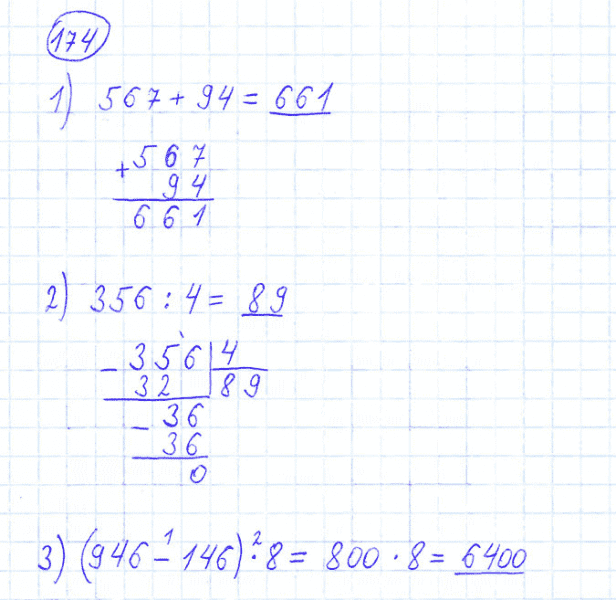 174
1) 567 + 94 = 661
+ 567
94
661
2) 356 : 4 = 89
- 356 | 4
32 | 89
- 36
36
0
1 2
3) (946 - 146) · 8 = 800 · 8 = 6400